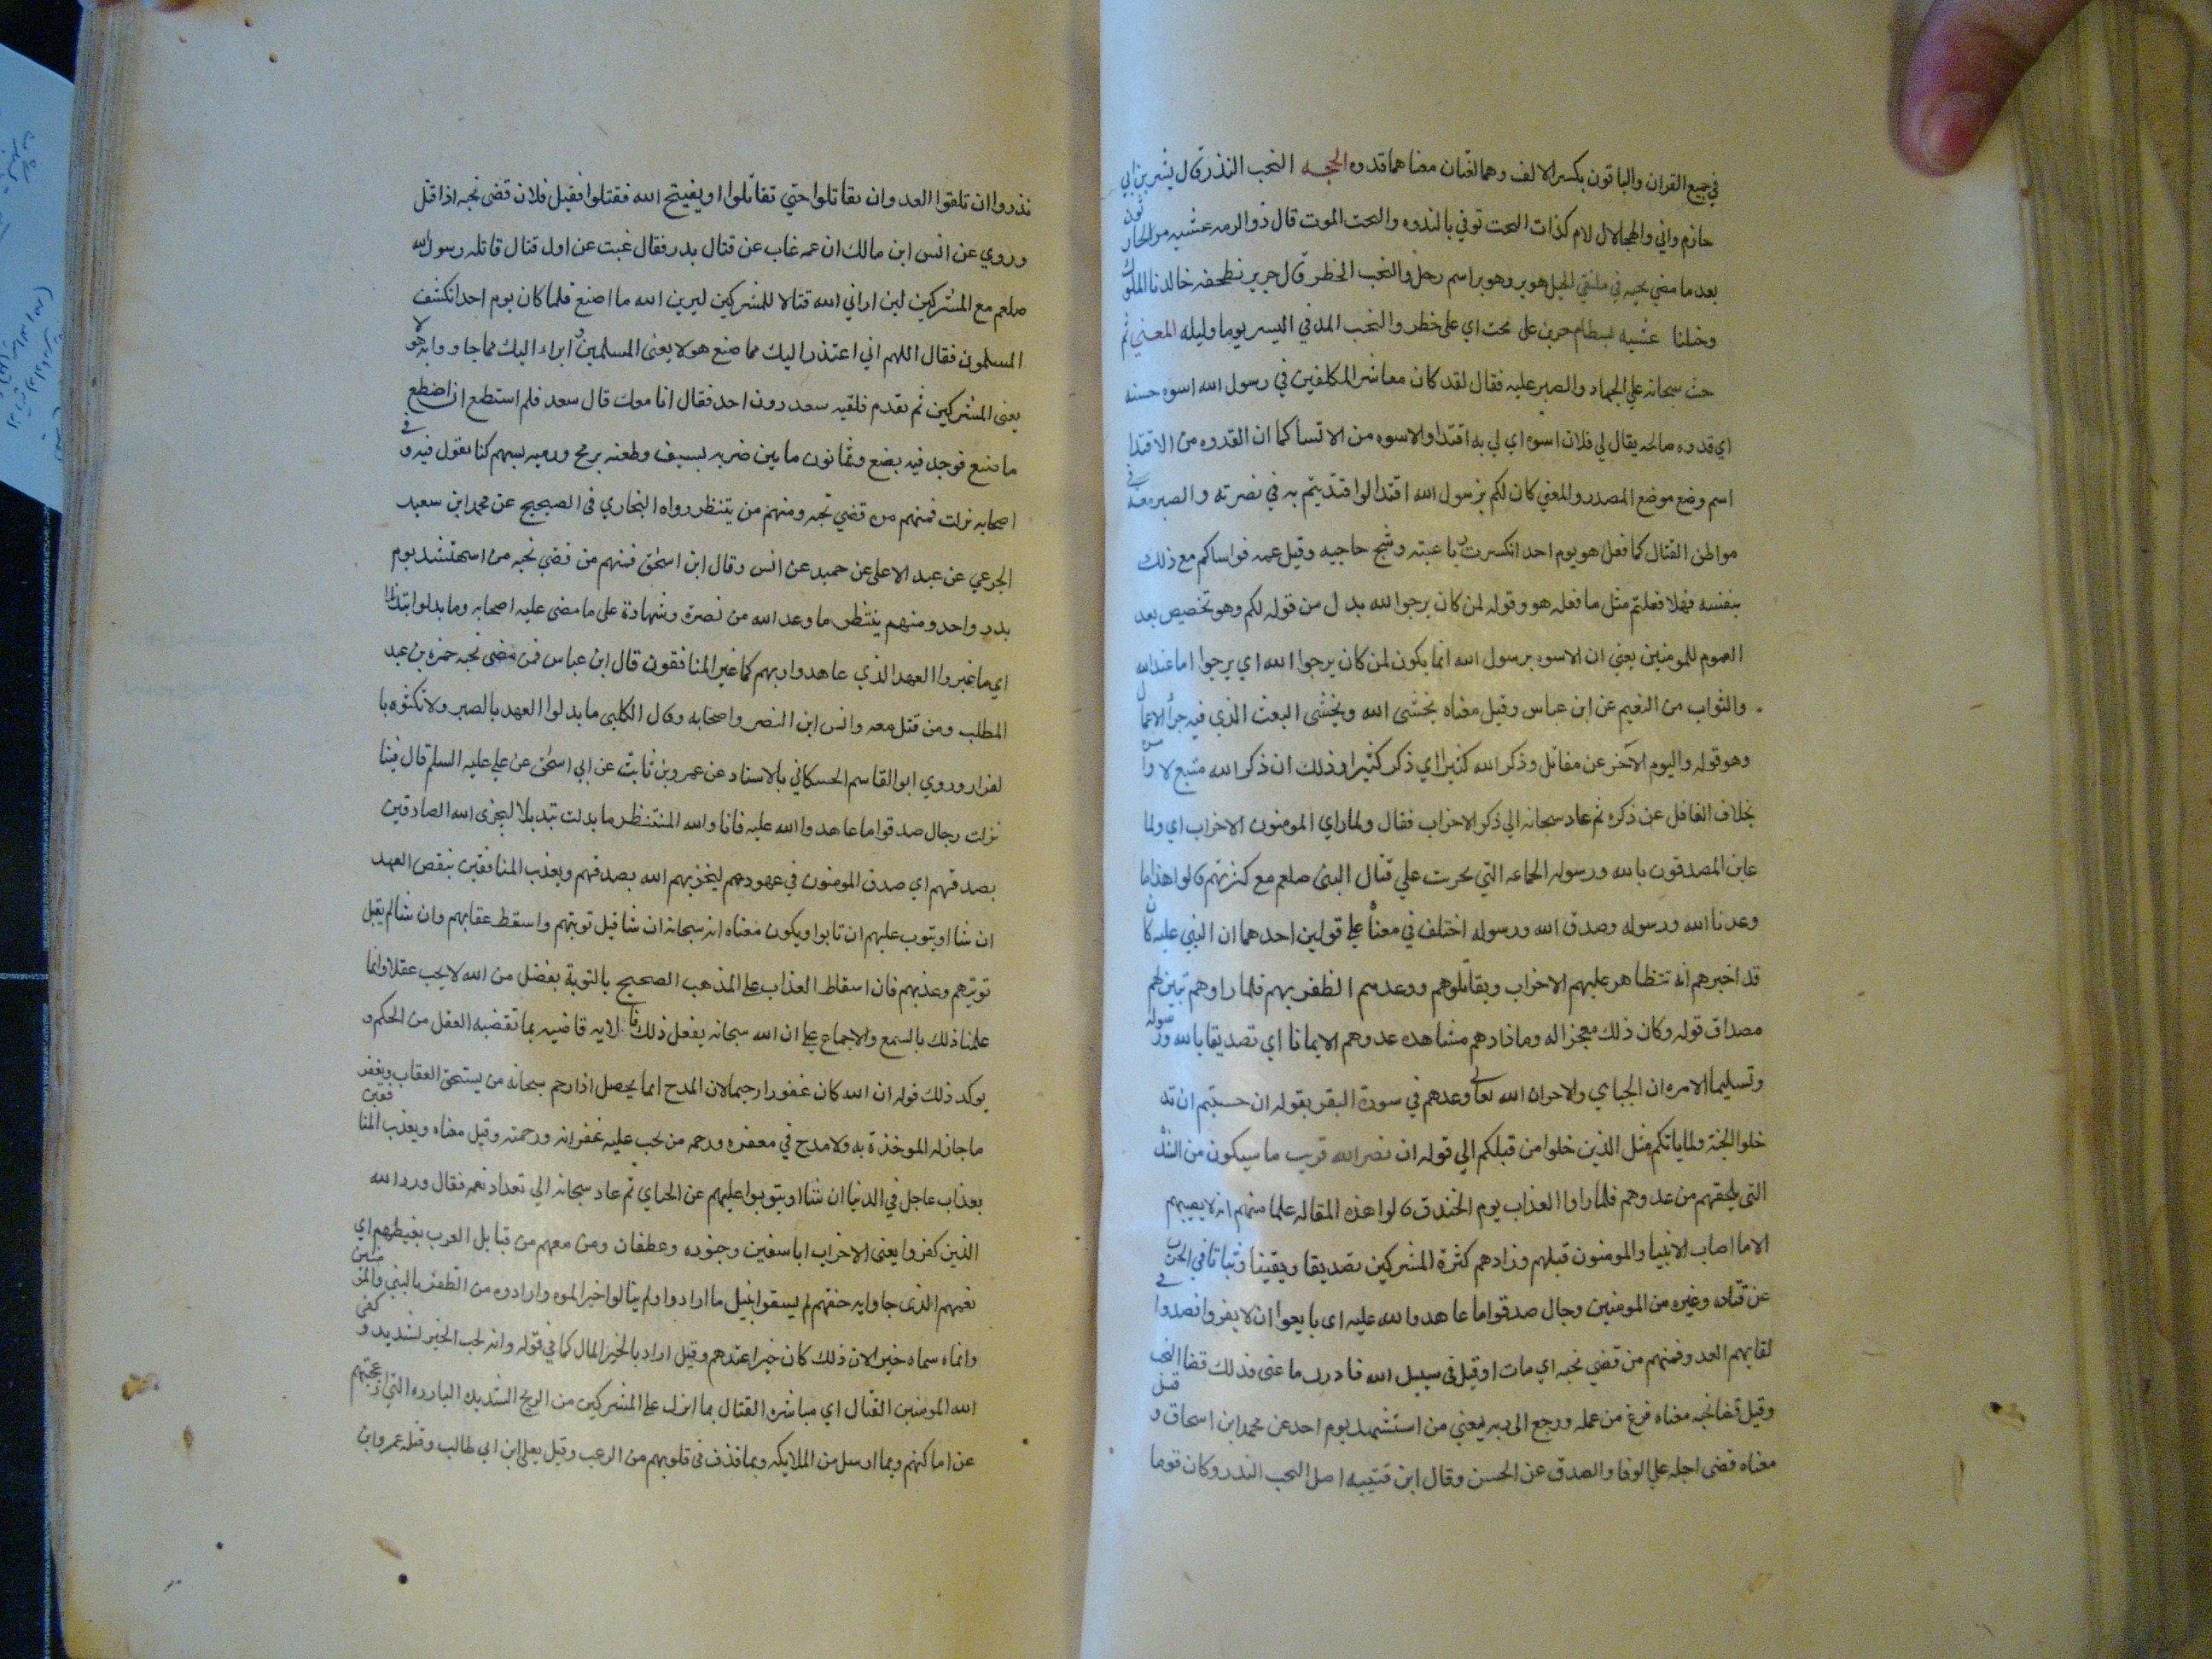 في جميع القران والباقون بكسر الالف وهما لغتان معناهما قدوه الحجه النحب النذر قال بشر بن ابي
حازم واني والهجا لال لام كذات النحب توفي بالنذوه والنحب الموت قال ذو الرمه عشيه مر الحارثون
بعد ما مضي نحبه في ملتقي الخيل هوبر وهوبر اسم رجل والنحب الخطر قال جرير بطخفه خالدنا الملوك
وخيلنا عشيه بسطام جرين على نحب اي على خطر والنحب المد في السير يوما وليله المعني ثم
حث سبحانه علي الجهاد والصبر عليه فقال لقد كان معاشر المكلفين في رسول الله اسوه حسنه
اي قدوه صالحه يقال لي فلان اسوه اي لي به اقتدا والاسوه من الاتسا كما ان القدوه من الاقتدا
اسم وضع موضع المصدر والمعني كان لكم برسول الله اقتدا لو اقتديتم به في نصرته والصبر معه في
مواطن القتال كما فعل هو يوم احد انكسرت رباعيته وشج حاجبه وقيل عمه فواساكم مع ذلك
بنفسه فهلا فعلتم مثل ما فعله هو وقوله لمن كان يرجوا الله بدل من قوله لكم وهو تخصيص بعد
العموم للمومنين يعني ان الاسوه برسول الله انما يكون لمن كان يرجوا الله اي يرجوا ما عند الله
والثواب من النعيم عن ابن عباس وقيل معناه يخشى الله ويخشى البعث الذي فيه جزا الاعمال
وهو قوله واليوم الآخر عن مقاتل وذكر الله كثيرا اي ذكر كثيرا وذلك ان ذكر الله متبع لاوامره
بخلاف الغافل عن ذكره ثم عاد سبحانه الي ذكر الاحزاب فقال ولما راي المومنون الاحزاب اي ولما
عاين المصدقون بالله ورسوله الجماعه التي تحربت علي قتال النبي صلعم مع كثرتهم قالوا هذا ما
وعدنا الله ورسوله وصدق الله ورسوله اختلف في معناه علي قولين احدهما ان النبي عليه كان
قد اخبرهم انه تتظاهر عليهم الاحزاب ويقاتلوهم ووعدهم الظفر بهم فلما راوهم تبين لهم
مصداق قوله وكان ذلك معجزا له وما زادهم مشاهده عدوهم الا ايمانا اي تصديقا بالله ورسوله
وتسليما لامره ان الجباي والاخران الله تعالى وعدهم في سورة البقر بقوله ان حسبتم ان تد
خلوا الجنة ولما ياتكم مثل الذين خلوا من قبلكم الي قوله ان نصر الله قريب ما سيكون من الشده
التي يلحقهم من عدوهم فلما راوا العذاب يوم الخندق قالوا هذه المقاله علما منهم انه لا يصيبهم
الا ما اصاب الانبيا والمومنون قبلهم وزادهم كثرة المشركين تصديقا ويقينا وثباتا في الحرب
عن قتاده وغيره من المومنين رجال صدقوا ما عاهدوا الله عليه اى بايعوا ان لا يفروا فصدقوا في
لقايهم العدو فمنهم من قضي نحبه اي مات او قيل في سبيل الله فادرك ما عنى فذلك قضا النحب
وقيل قضا نحبه معناه فرغ من عمله ورجع الى ربه يعني من استشهد يوم احد عن محمد ابن اسحاق وقيل
معناه قضى اجله علي الوفا والصدق عن الحسن وقال ابن قتيبه اصل النحب النذر وكان قوما
نذروا ان تلقوا العدو ان يقاتلوا حتي تقاتلوا او يفتح الله فقتلوا فقيل فلان قضى نحبه اذا قتل
وروي عن انس ابن مالك ان عمه غاب عن قتال بدر فقال غبت عن اول قتال قاتله رسول الله
صلعم مع المشركين لين اراني الله قتالا للمشركين ليرين الله ما اصنع فلما كان يوم احد انكشف
المسلمون فقال اللهم اني اعتذر اليك مما صنع هولا يعنى المسلمين وابراء اليك مما جاوا به هولا
يعنى المشركين ثم تقدم فلقيه سعد دون احد فقال انا معك قال سعد فلم استطع ان اضطع
ما صنع فوجد فيه بضع وثمانون ما بين ضربه بسيف وطعنه برمح ورميه بسهم كنا نقول فيه وفي
اصحابه نزلت فمنهم من قضي نحبه ومنهم من ينتظر رواه البخاري في الصحيح عن محمد ابن سعيد
الجرعي عن عبد الاعلى عن حميد عن انس وقال ابن اسحق فمنهم من قضي نحبه من استشهد يوم
بدر واحد ومنهم ينتظر ما وعد الله من نصرة وشهادة على ما مضى عليه اصحابه وما بدلوا تبديلا
اي ما غيروا العهد الذي عاهدوا ربهم كما غير المنافقون قال ابن عباس فمن قضى نحبه حمزه بن عبد
المطلب ومن قتل معه وانس ابن النضر واصحابه وقال الكلبي ما بدلوا العهد بالصبر ولا نكثوه با
لفرار وروي ابو القاسم الحسكاني بالاسناد عن عمرو بن ثابت عن ابي اسحق عن علي عليه السلم قال فينا
نزلت رجال صدقوا ما عاهدوا الله عليه فانا والله المنتظر ما بدلت تبديلا ليجزى الله الصادقين
بصدقهم اي صدق المومنون في عهودهم ليجزيهم الله بصدقهم ويعذب المنافقين بنقص العهد
ان شا او يتوب عليهم ان تابوا ويكون معناه انه سبحانه ان شا قبل توبتهم واسقط عقابهم وان شا لم يقبل
توبتهم وعذبهم فان اسقاط العذاب علي المذهب الصحيح بالتوبة بفضل من الله لا يجب عقلا وانما
علمنا ذلك بالسمع والاجماع علي ان الله سبحانه يفعل ذلك فالايه قاضيه بما تقضيه العقل من الحكم و
يوكد ذلك قوله ان الله كان غفورا رحيما لان المدح انما يحصل اذا رحم سبحانه من يستحق العقاب ويغفر
ما جاز له الموخذة به ولا مدح في مغفره ورحمه من يجب عليه غفرانه ورحمته وقيل معناه ويعذب المنافقين
بعذاب عاجل في الدنيا ان شا او يتوبوا عليهم عن الجباي ثم عاد سبحانه الي تعداد نعمه فقال ورد الله
الذين كفروا يعنى الاحزاب ابا سفين وجنوده وغطفان ومن معهم من قبايل العرب بغيظهم اي
بغمهم الذى جاوا به حنقهم لم يسقوا بنيل ما ارادوا ولم ينالوا خيرا املوه وارادوه من الظفر بالنبي والمومنين
وانماه سماه خيرا لان ذلك كان خيرا عندهم وقيل اراد بالخير المال كما في قوله وانه لحب الخير لشديد وكفى
الله المومنين القتال اي مباشره القتال بما انزل على المشركين من الريح الشديده البارده التي ازعجتهم
عن اماكنهم وبما ارسل من الملايكه وبما قذف في قلوبهم من الرعب وقيل بعلي ابن ابي طالب وقتله عمرو ابن